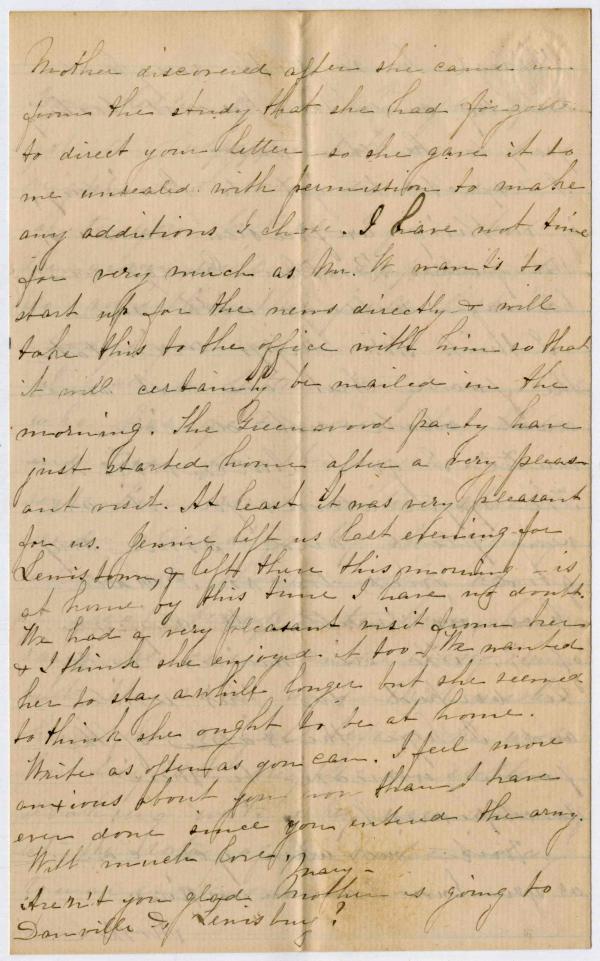 Mother discovered after she came in
from the study that she had forgotten
to direct your letter so she gave it to
me unsealed with permission to make
any additions I chose. I have not time
for very much as Mr. W wants to
start up for the news directly & will
take this to the office with him so that
it will certainly be mailed in the
morning. The Greenwood party have
just started home after a very pleas-
ant visit. At least it was very pleasant
for us. Jennie left us last evening for
Lewistown, & left there this morning – is
at home by this time I have no doubt.
We had a very pleasant visit from her
& I think she enjoyed it too. We wanted
her to stay awhile longer but she seemed
to think she ought to be at home.
Write as often as you can. I feel more
anxious about you now than I have
ever done since you entered the army.
With much love,
Mary –
Aren't you glad Mother is going to
Danville & Lewisburg?